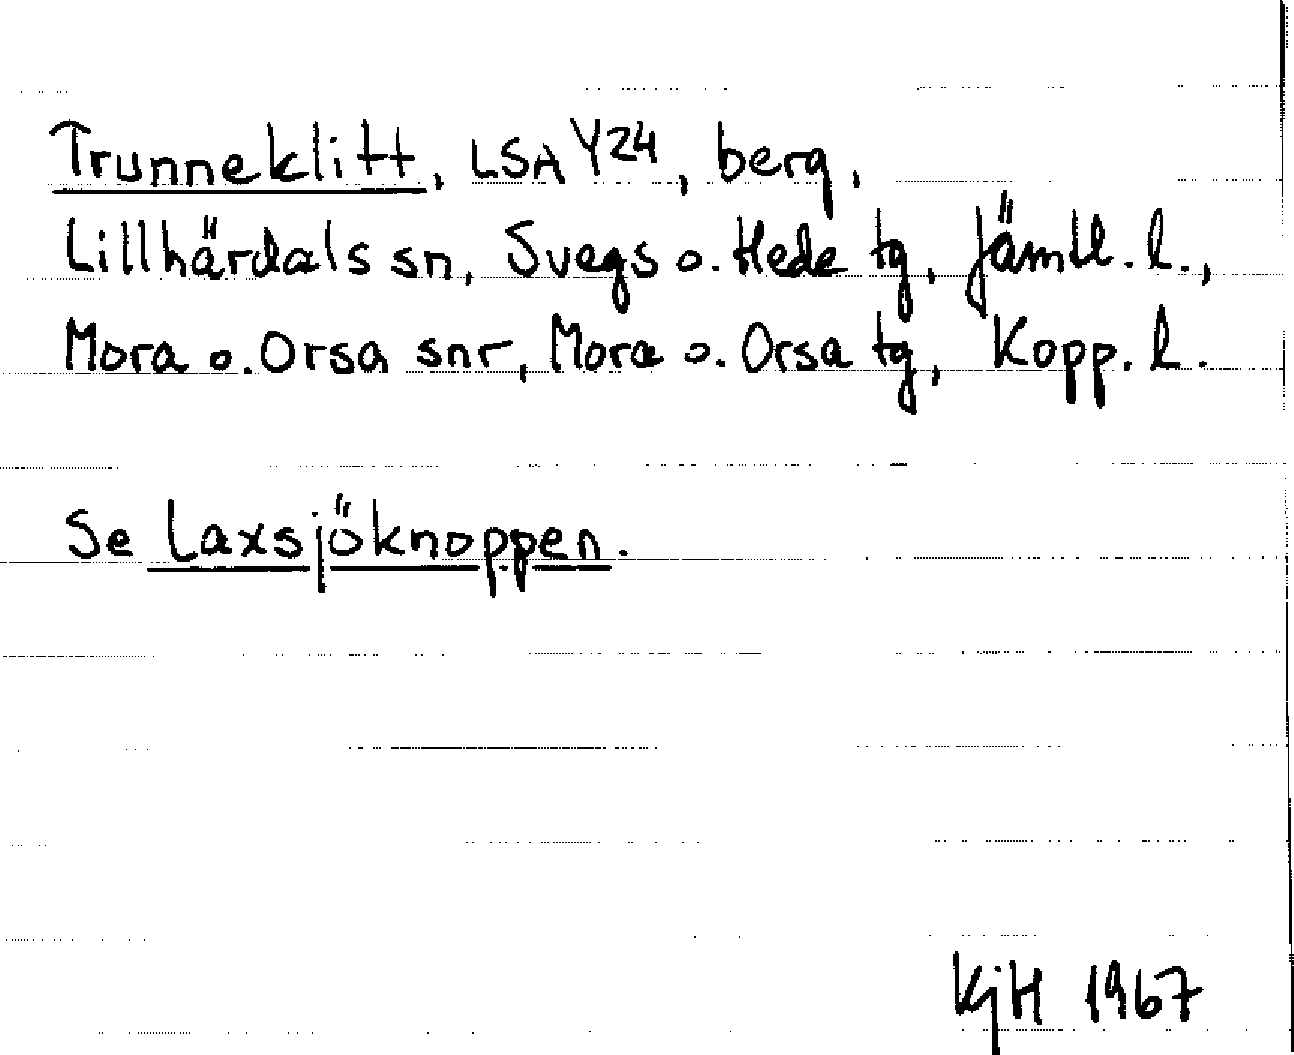 Trunneklitt, LSA Y24, berg,
Lillhärdals sn, Svegs o. Hede tg, Jämtl. l.,
Mora o. Orsa snr, Mora o. Orsa tg, Kopp. l.
Se Laxsjöknoppen.
KjH 1967